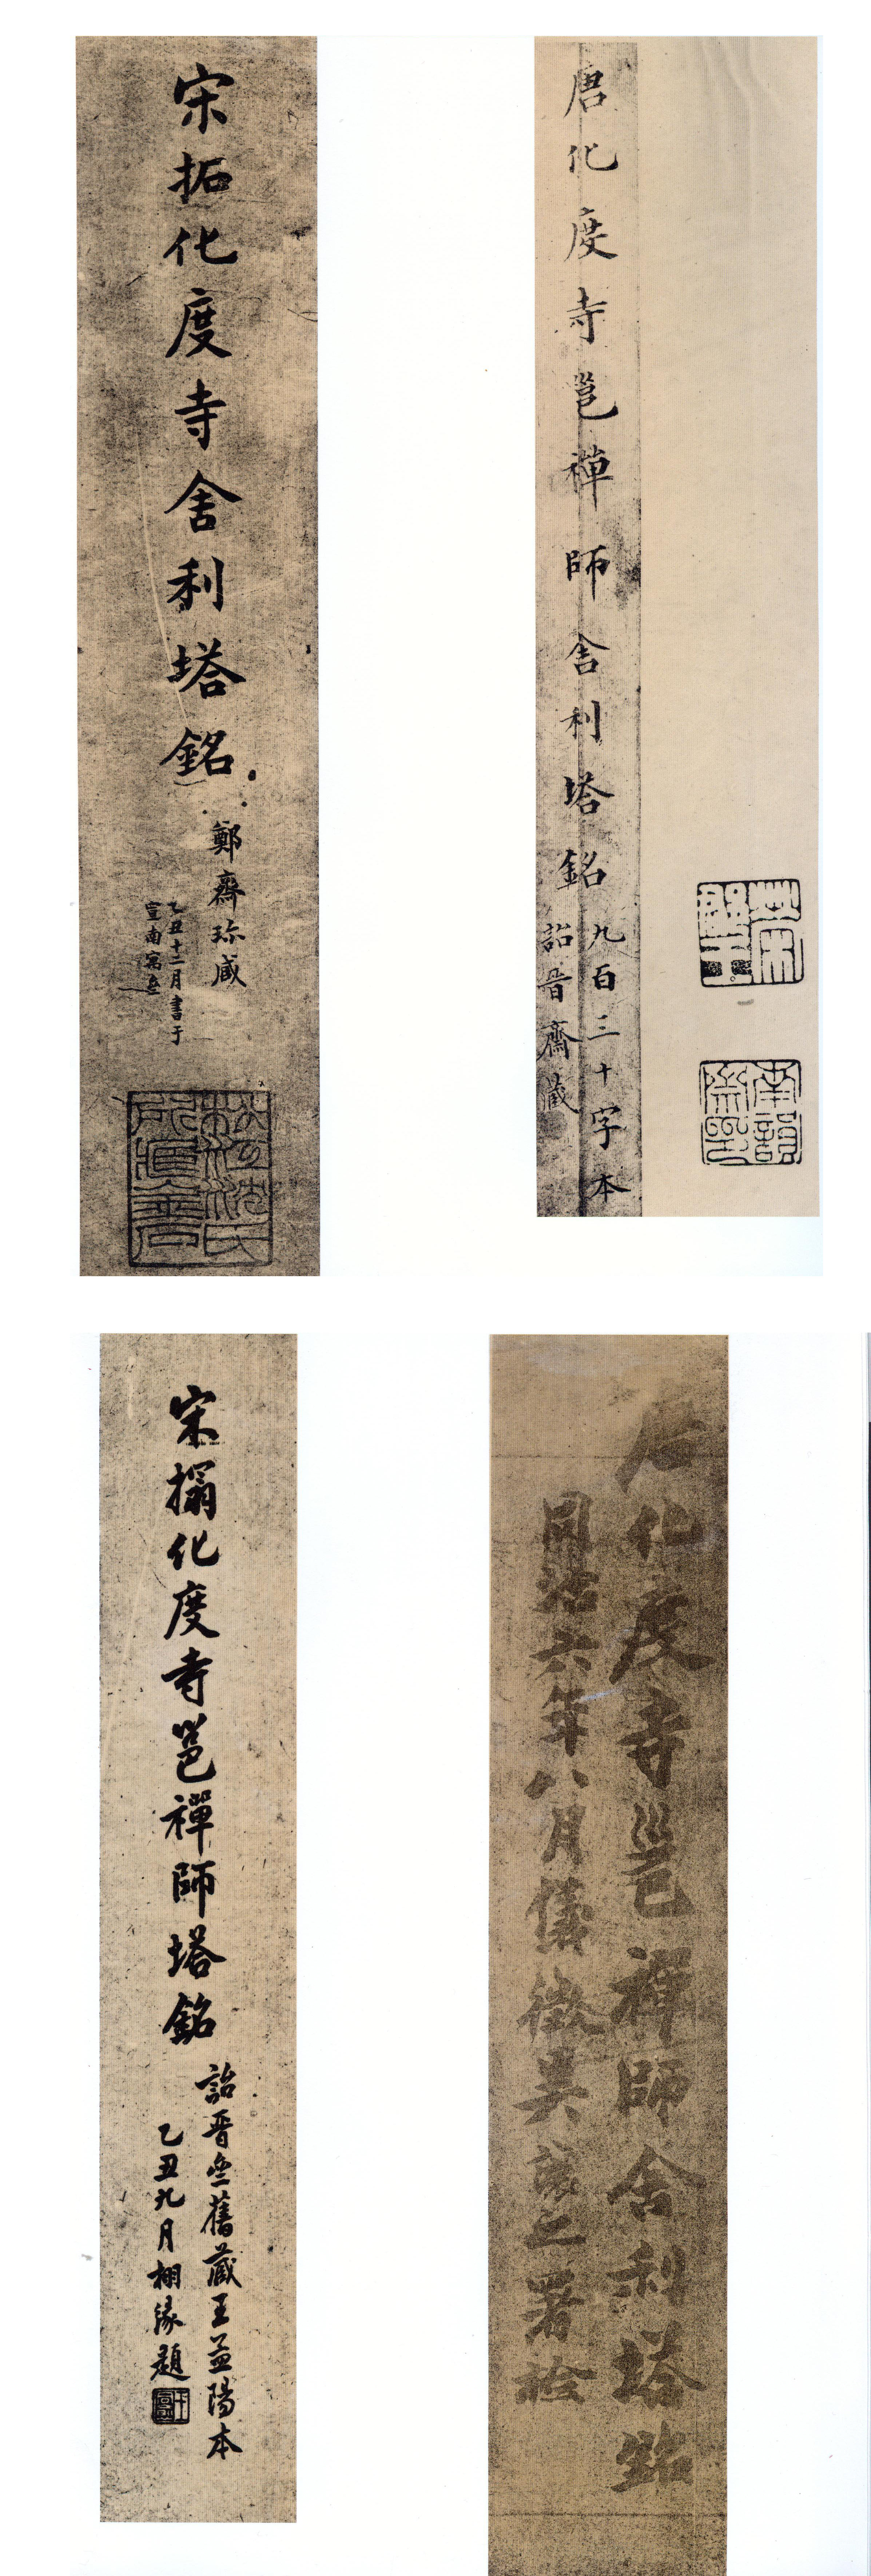 榮郡王
南韻齋印
唐化度寺邕禪師舍利塔銘
九百三十字本
詒晉齋藏
宋拓化度寺舍利塔銘
鄭齋珍藏
乙丑十二月書于
宣南寓盦
松江沈氏所藏金石
唐化度寺邕禪師舍利塔銘
同治六年八月儀徵吳讓之署檢
宋搨化度寺邕禪師塔銘
詒晉盦舊藏王孟陽本
乙丑九月栩緣題